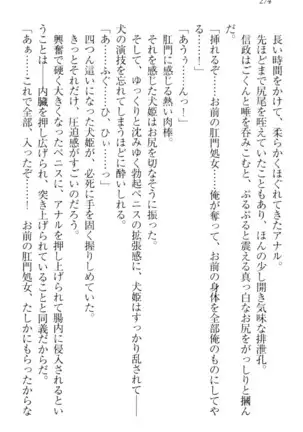 274
長い時間をかけて、柔らかくほぐれてきたアナル。
先ほどまで尻尾を咥えていたこともあり、ほんの少し開き気味な排泄孔。
信政はごくんと唾を呑みこむと、ぷるぷると震える真っ白なお尻をがっしりと摑んだ。
「挿れるぞ……お前の肛門処女……俺が奪って、お前の身体を全部俺のものにしてやる……！」
「あうぅ……んっ…」
肛門に感じる熱い肉棒。
それを感じた犬姫はお尻を切なそうに振った。
そして、ゆっくりと沈みゆく勃起ペニスの拡張感に、犬姫はすっかり乱されて――
犬の演技を忘れてしまうほどに酔いしれる。
「あっ……ふぐっ……ひ、ひぃ……っ」
四つん這いになった犬姫が、必死に手を固く握りしめていた。
きっとそれだけ、圧迫感がすごいのだろう。
興奮で硬く大きくなったペニスに、アナルを押し上げられて腸内に侵入されるということは――内臓を押し広げられ、突き上げられていることと同義だからだ。
「あぁ……これで全部、入ったぞ……！　お前の肛門処女、たしかにもらったからな